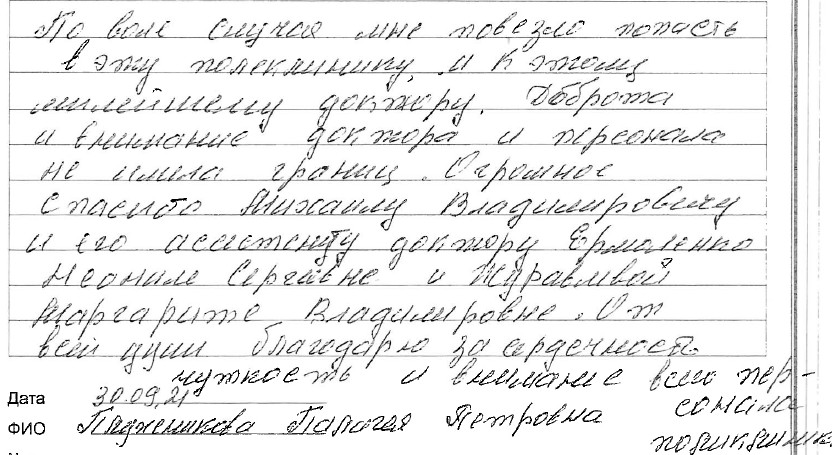 По воле случая мне повезло попасть
в эту поликлинику, и к этому
милейшему доктору. Доброта
и внимание доктора и персонала
не имела границ. Огромное
спасибо Михаилу Владимировичу
и его ассистенту доктору Ермоленко
Неониле Сергеевне и Журавлёвой
Маргарите Владимировне. От
всей души благодарю за сердечность
чуткость и внимание всего пер-
сонала
поликлиники
Дата 30.09.21
ФИО Петровна